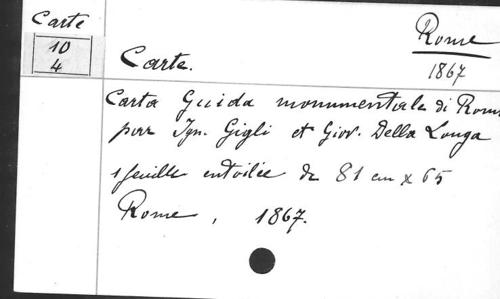 Carte
10
4
Rome
1867
Carte.
Carta Guida monumentale di Roma
par Ign. Gigli et Giov. Della Longa
1 feuille entoilée de 81 cm x 65
Rome, 1867.